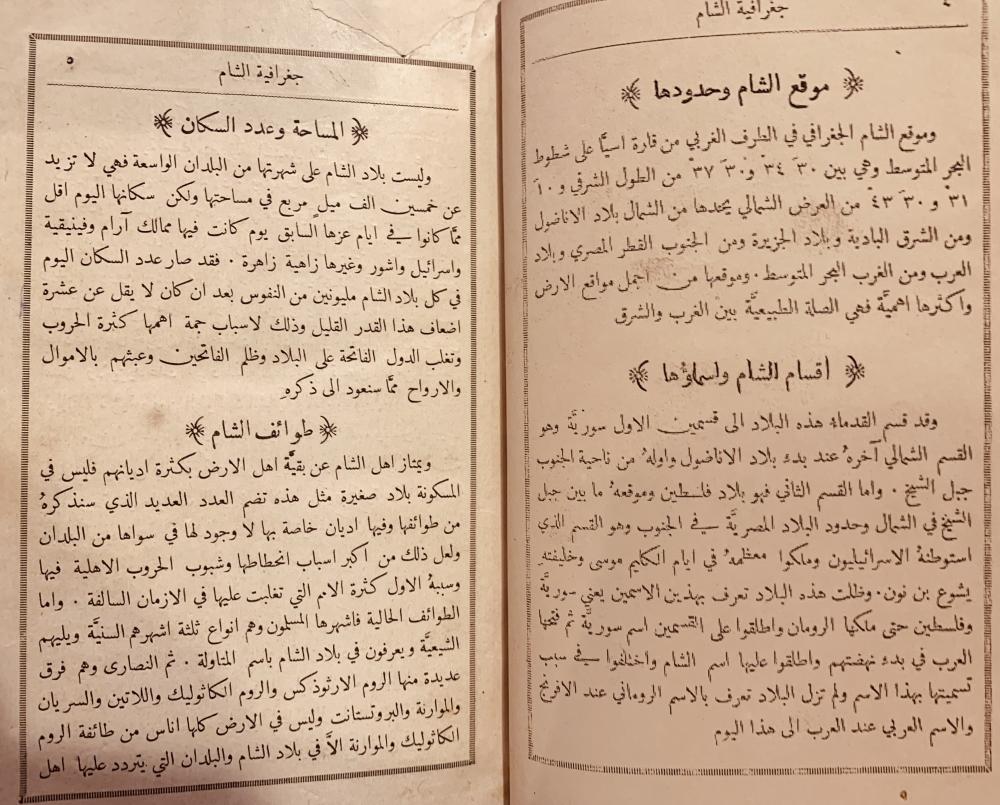 جغرافية الشام
٤
موقع الشام وحدودها
وموقع الشام الجغرافي في الطرف الغربي من قارة اسيَّا على شطوط
البحر المتوسط وهي بين ٣٠َ ٣٤ْ و٣٠َ ٣٧ْ من الطول الشرقي و١٠َ
٣١ْ و٣٠َ ٤٣ْ من العرض الشمالي يحدها من الشمال بلاد الاناضول
ومن الشرق البادية وبلاد الجزيرة ومن الجنوب القطر المصري وبلاد
العرب ومن الغرب البحر المتوسط . وموقعها من اجمل مواقع الارض
واكثرها اهميَّة فهي الصلة الطبيعيَّة بين الغرب والشرق
أقسام الشام واسماؤها
وقد قسم القدماء هذه البلاد الى قسمين الاول سوريَّة وهو
القسم الشمالي آخرهُ عند بدء بلاد الاناضول واولهُ من ناحية الجنوب
جبل الشيخ . واما القسم الثاني فهو بلاد فلسطين وموقعهُ ما بين جبل
الشيخ في الشمال وحدود البلاد المصريَّة في الجنوب وهو القسم الذي
استوطنهُ الاسرائيليون وملكوا معظمهُ في ايام الكليم موسى وخليفتهِ
يشوع بن نون . وظلت هذه البلاد تعرف بهذين الاسمين يعني سوريَّة
وفلسطين حتى ملكها الرومان واطلقوا على القسمين اسم سوريَّة ثم فتحها
العرب في بدء نهضتهم واطلقوا عليها اسم الشام واختلفوا في سبب
تسميتها بهذا الاسم ولم تزل البلاد تعرف بالاسم الروماني عند الافرنج
والاسم العربي عند العرب الى هذا اليوم
جغرافية الشام
٥
المساحة وعدد السكان
وليست بلاد الشام على شهرتها من البلدان الواسعة فهي لا تزيد
عن خمسين الف ميلٍ مربع في مساحتها ولكن سكانها اليوم اقل
ممَّا كانوا في ايام عزها السابق يوم كانت فيها ممالك آرام وفينيقية
واسرائيل واشور وغيرها زاهية زاهرة . فقد صار عدد السكان اليوم
في كل بلاد الشام مليونين من النفوس بعد ان كان لا يقل عن عشرة
اضعاف هذا القدر القليل وذلك لاسباب جمة اهمها كثرة الحروب
وتغلب الدول الفاتحة على البلاد وظلم الفاتحين وعبثهم بالاموال
والارواح ممَّا سنعود الى ذكرهِ
طوائف الشام
ويمتاز اهل الشام عن بقيَّة اهل الارض بكثرة اديانهم فليس في
المسكونة بلاد صغيرة مثل هذه تضم العدد العديد الذي سنذكرهُ
من طوائفها وفيها اديان خاصة بها لا وجود لها في سواها من البلدان
ولعل ذلك من اكبر اسباب انحطاطها وشبوب الحروب الاهلية فيها
وسببهُ الاول كثرة الامم التي تغلبت عليها في الازمان السالفة . واما
الطوائف الحالية فاشهرها المسلمون وهم انواع ثلثة اشهرهم السنيَّة ويليهم
الشيعيَّة ويعرفون في بلاد الشام باسم المتاولة . ثم النصارى وهم فرق
عديدة منها الروم الارثوذكس والروم الكاثوليك واللاتين والسريان
والموارنة والبروتستانت وليس في الارض كلها اناس من طائفة الروم
الكاثوليك والموارنة الاَّ في بلاد الشام والبلدان التي يتردد عليها اهل